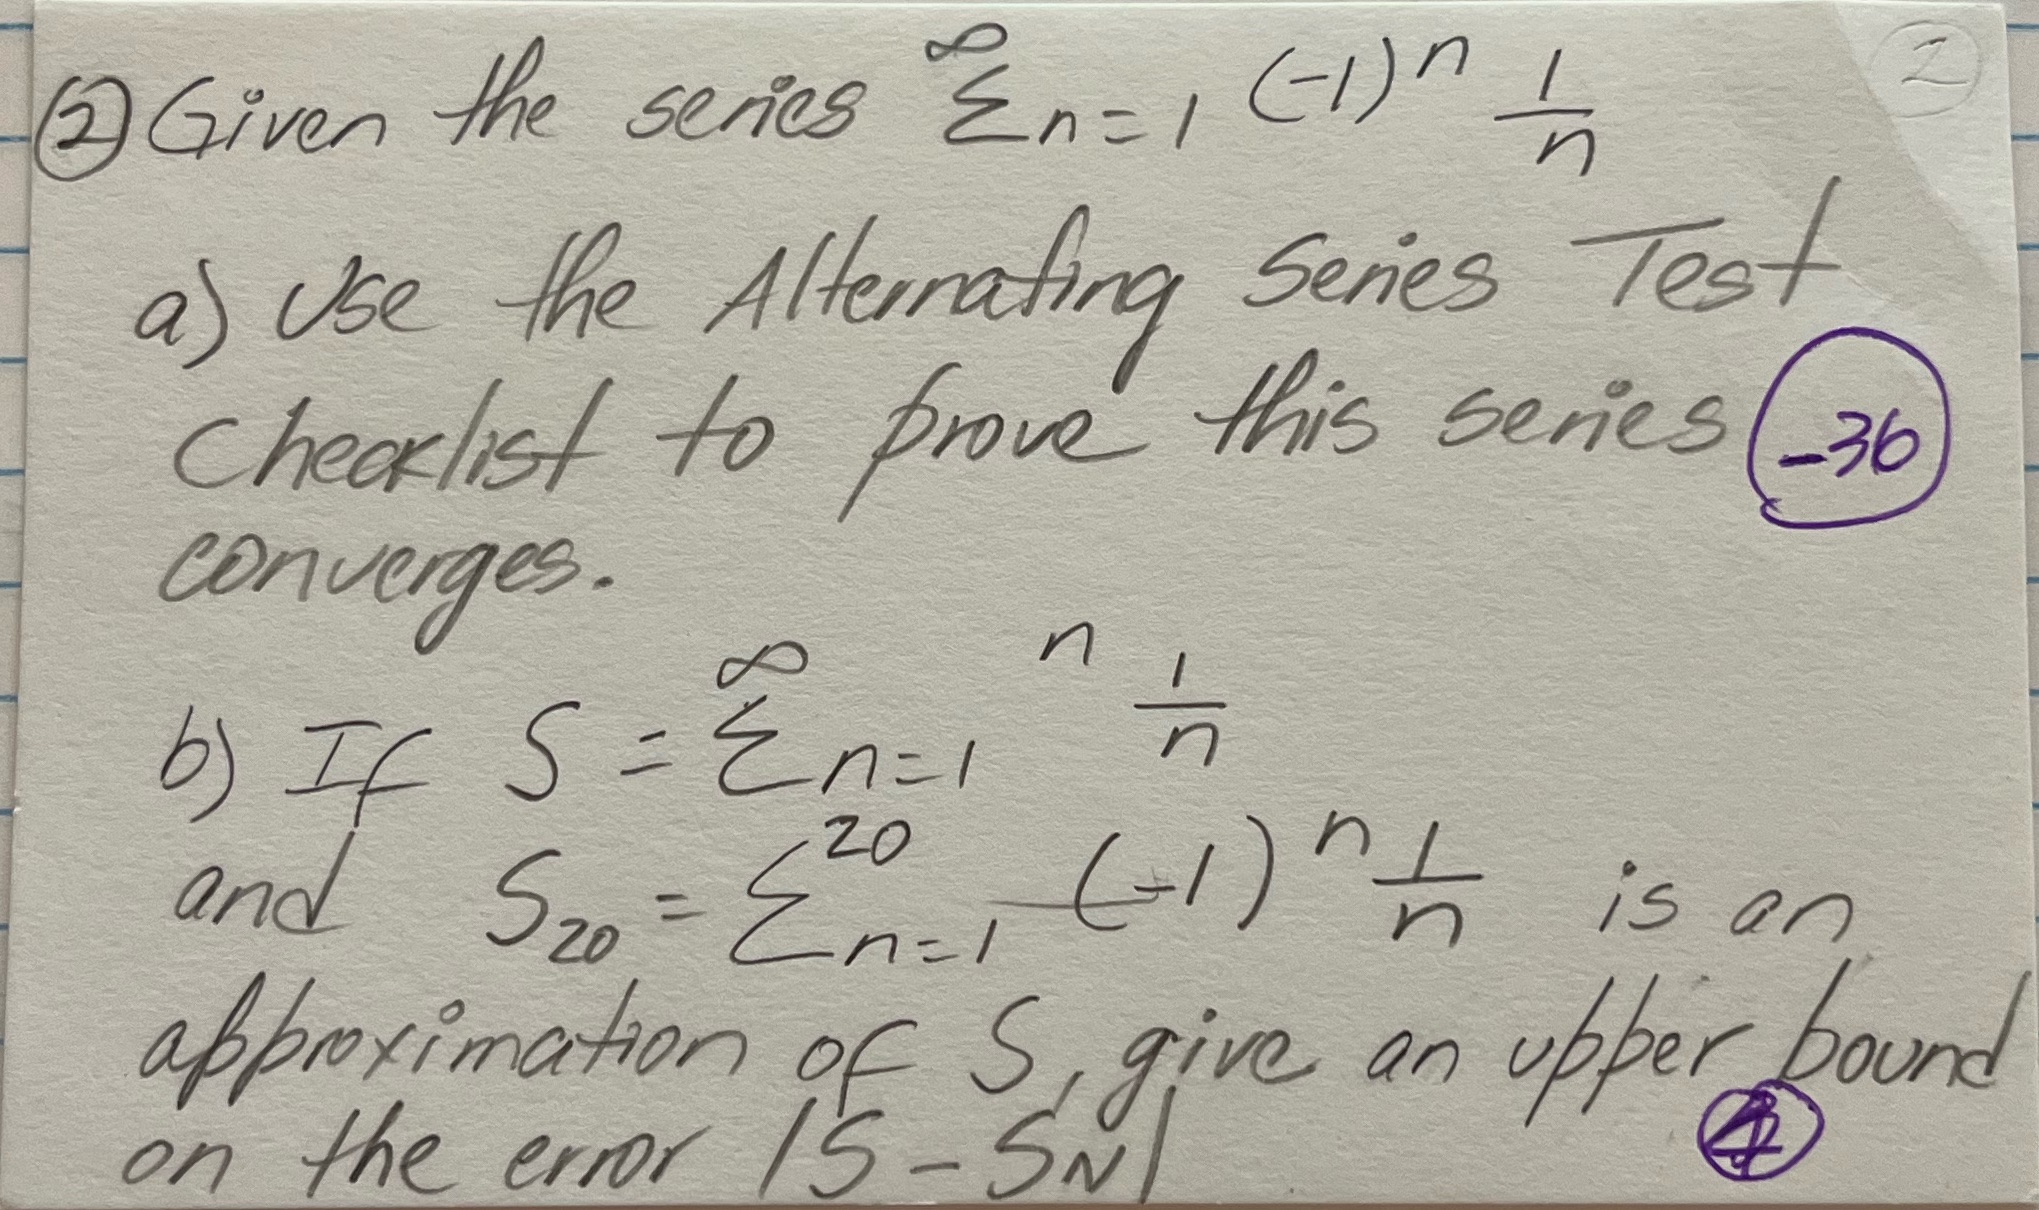 ② Given the series ∞ Σ n=1 (-1)ⁿ 1/n 2
a) Use the Alternating Series Test
Checklist to prove this series -36
converges.
b) If S = ∞ Σ n=1 ⁿ 1/n
and S₂₀ = Σ²⁰ n=1 (-1)ⁿ 1/n is an
approximation of S, give an upper bound
on the error |S - S_N|